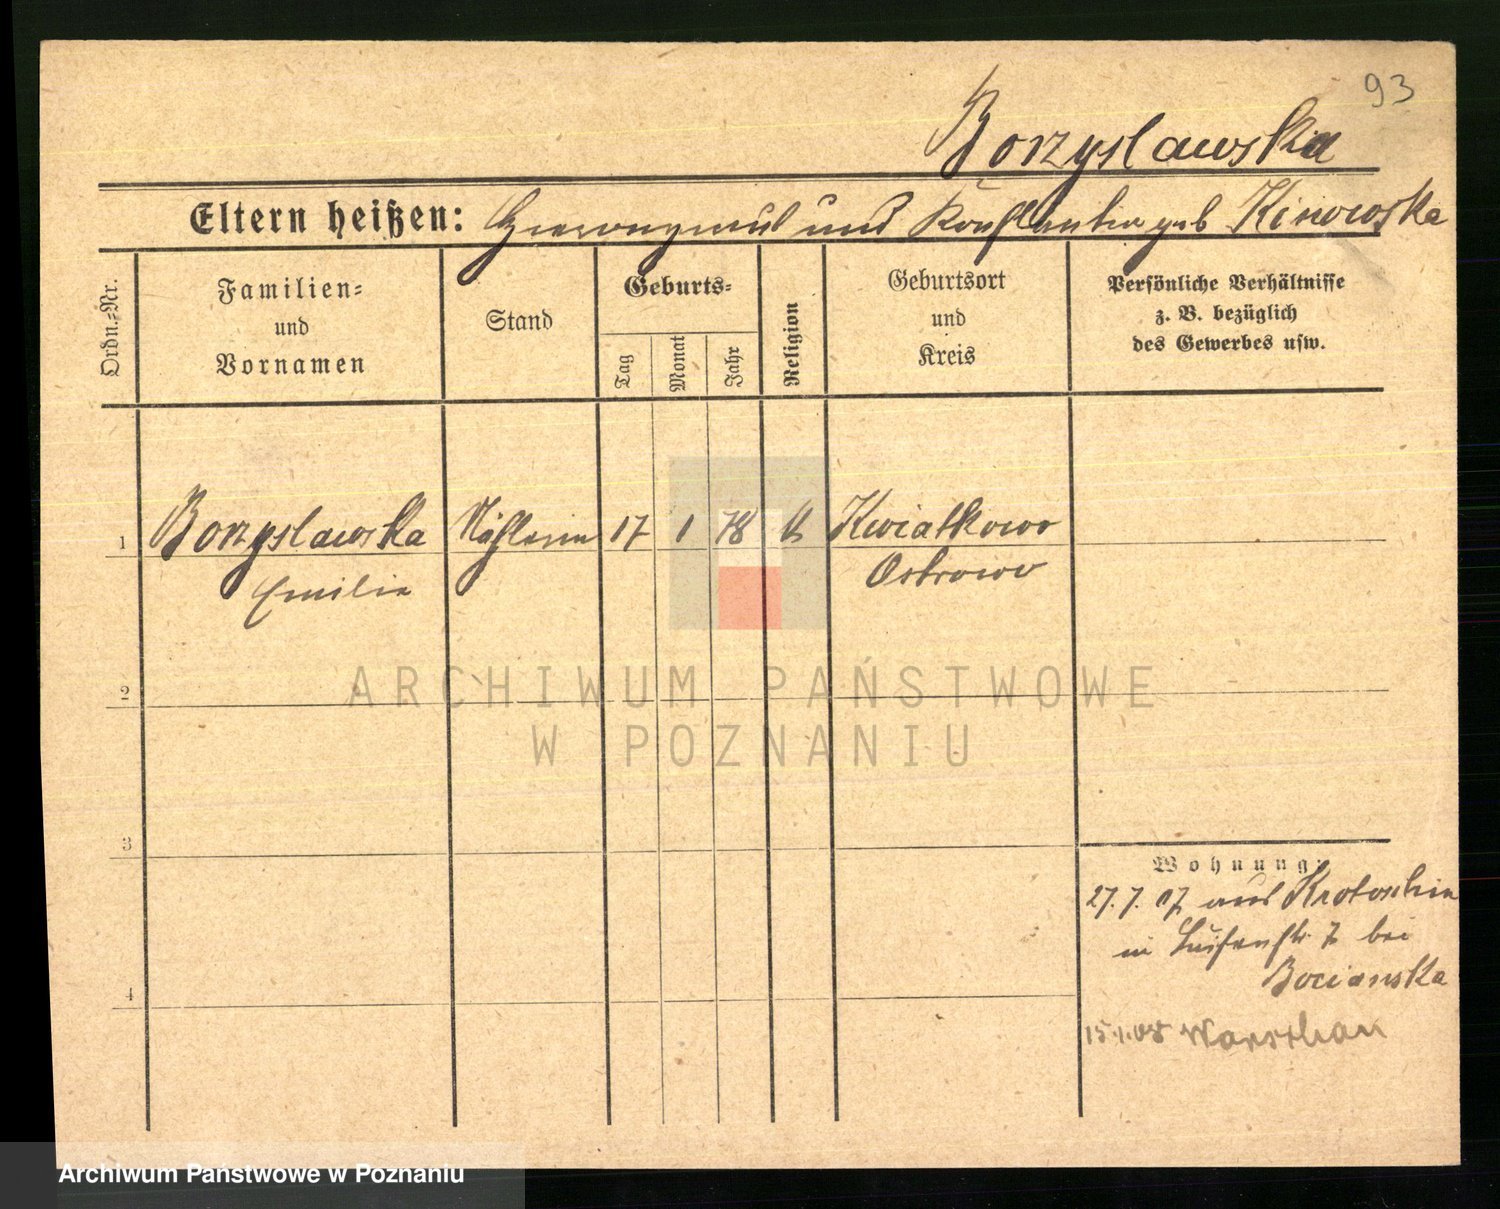 93
Borzyslawska
Eltern heißen: Hieronymus und Konstantia geb Kinowska
Ordn.-Nr.
Familien-
und
Vornamen
Stand
Geburts-
Tag
Monat
Jahr
Religion
Geburtsort
und
Kreis
Persönliche Verhältnisse
z. B. bezüglich
des Gewerbes usw.
1 Borzyslawska Nähterin 17 1 78 k Kwiatkowo
Emilie Ostrowo
ARCHIWUM PAŃSTWOWE
W POZNANIU
2
3
4
Wohnung:
27.7.07 aus Krotoschin
in Luisenstr. 7 bei
Bocianska
15.1.08 Warschau
Archiwum Państwowe w Poznaniu